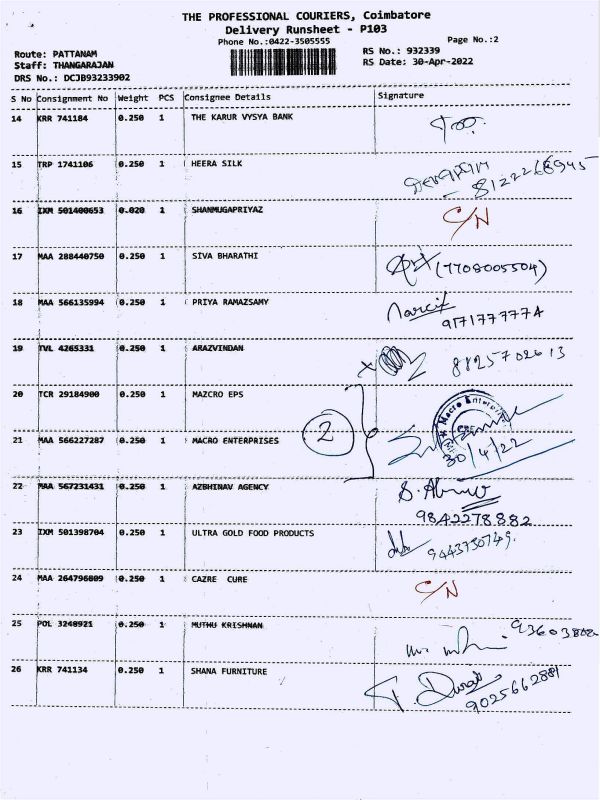 THE PROFESSIONAL COURIERS, Coimbatore
Delivery Runsheet - P103
Phone No.:0422-3505555
Page No.:2
Route: PATTANAM
RS No.: 932339
Staff: THANGARAJAN
RS Date: 30-Apr-2022
DRS No.: DCJB93233902
S No Consignment No Weight PCS Consignee Details Signature
14 KRR 741184 0.250 1 THE KARUR VYSYA BANK
15 TRP 1741106 0.250 1 HEERA SILK
8122268945
16 IXM 501400653 0.020 1 SHANMUGAPRIYAZ C/N
17 MAA 288440750 0.250 1 SIVA BHARATHI (7708005504)
18 MAA 566135994 0.250 1 PRIYA RAMAZSAMY
9171777774
19 TVL 4265331 0.250 1 ARAZVINDAN 8825702613
20 TCR 29184900 0.250 1 MAZCRO EPS
2
21 MAA 566227287 0.250 1 MACRO ENTERPRISES
30/4/22
22 MAA 567231431 0.250 1 AZBHINAV AGENCY
9842278882
23 IXM 501398704 0.250 1 ULTRA GOLD FOOD PRODUCTS 9443730749.
24 MAA 264796809 0.250 1 CAZRE CURE C/N
25 POL 3248921 0.250 1 MUTHU KRISHNAN
26 KRR 741134 0.250 1 SHANA FURNITURE
9025662881